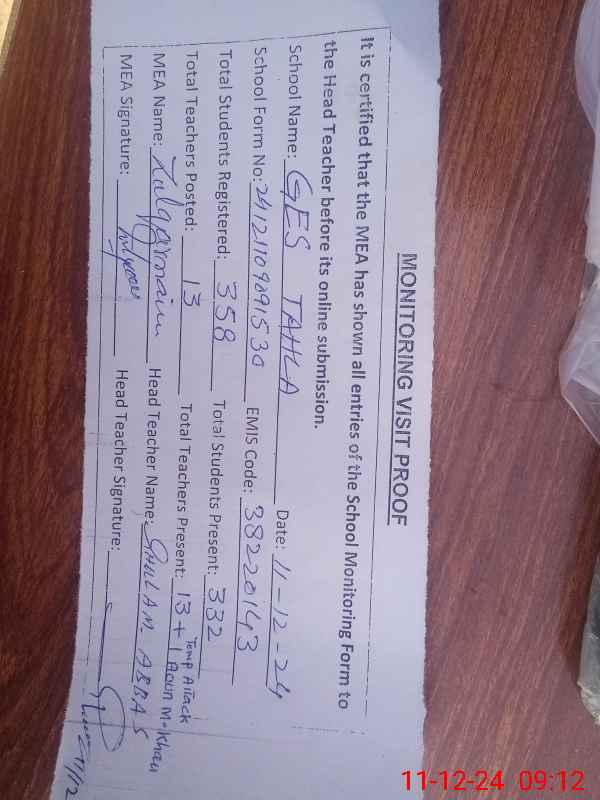 MONITORING VISIT PROOF
It is certified that the MEA has shown all entries of the School Monitoring Form to
the Head Teacher before its online submission.
School Name: GES TAHLA Date: 11-12-24
School Form No: 241211090091530 EMIS Code: 38220143
Total Students Registered: 358 Total Students Present: 332
Total Teachers Posted: 13 Total Teachers Present: 13+1 Temp Attack Aoun M. Khan
MEA Name: Zulqarnain Head Teacher Name: GHULAM ABBAS
MEA Signature: Head Teacher Signature:
11/12
11-12-24 09:12